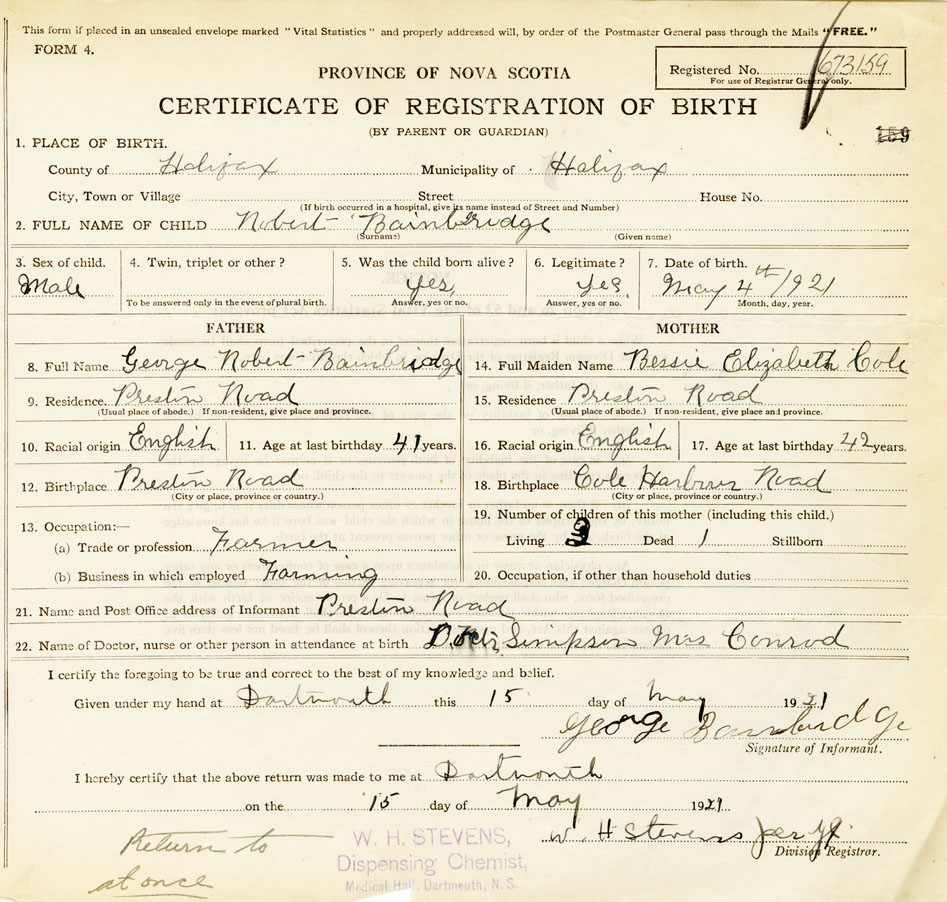 This form if placed in an unsealed envelope marked "Vital Statistics" and properly addressed will, by order of the Postmaster General pass through the Mails "FREE."
FORM 4.
PROVINCE OF NOVA SCOTIA
Registered No. 673159
For use of Registrar General only.
CERTIFICATE OF REGISTRATION OF BIRTH
(BY PARENT OR GUARDIAN)
159
1. PLACE OF BIRTH.
County of Halifax Municipality of Halifax
City, Town or Village Street House No.
(If birth occurred in a hospital, give its name instead of Street and Number)
2. FULL NAME OF CHILD Robert Bainbridge
(Surname) (Given name)
3. Sex of child. 4. Twin, triplet or other ? 5. Was the child born alive ? 6. Legitimate ? 7. Date of birth.
Male yes, yes May 4th 1921
To be answered only in the event of plural birth. Answer, yes or no. Answer, yes or no. Month, day, year.
FATHER
8. Full Name George Robert Bainbridge
9. Residence. Preston Road
(Usual place of abode.) If non-resident, give place and province.
10. Racial origin English 11. Age at last birthday 41 years.
12. Birthplace Preston Road
(City or place, province or country.)
13. Occupation:—
(a) Trade or profession. Farmer
(b) Business in which employed Farming
MOTHER
14. Full Maiden Name Bessie Elizabeth Cole
15. Residence Preston Road
(Usual place of abode.) If non-resident, give place and province.
16. Racial origin English 17. Age at last birthday 42 years.
18. Birthplace Cole Harbour Road
(City or place, province or country.)
19. Number of children of this mother (including this child.)
Living Dead 1 Stillborn
20. Occupation, if other than household duties
21. Name and Post Office address of Informant Preston Road
22. Name of Doctor, nurse or other person in attendance at birth Simpson Mrs Conrod
I certify the foregoing to be true and correct to the best of my knowledge and belief.
Given under my hand at Dartmouth this 15 day of May 1921
George Bainbridge
Signature of Informant.
I hereby certify that the above return was made to me at Dartmouth
on the 15 day of May 1921
W. H Stevens per
Division Registrar.
Return to
at once
W. H. STEVENS,
Dispensing Chemist,
Medical Hall, Dartmouth, N. S.